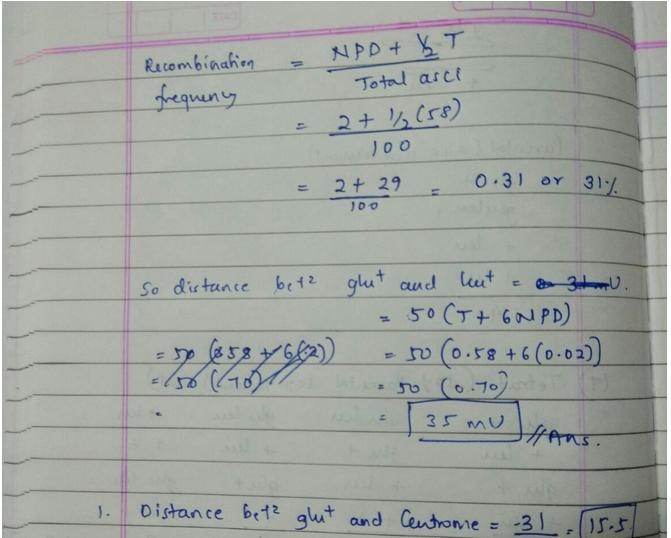 Recombination frequency = NPD + ½ T / Total asci
= 2 + 1/2 (58) / 100
= 2 + 29 / 100 = 0.31 or 31%
So distance bet² glu+ and leu+ = 31 mU.
= 50 (T + 6NPD)
= 50 (0.58 + 6(0.02))
= 50 (0.70)
= 35 mU // Ans.
= 50 (358 + 6(.2))
= 50 (70)
1. Distance bet² glu+ and Centrome = -31 = 15.5